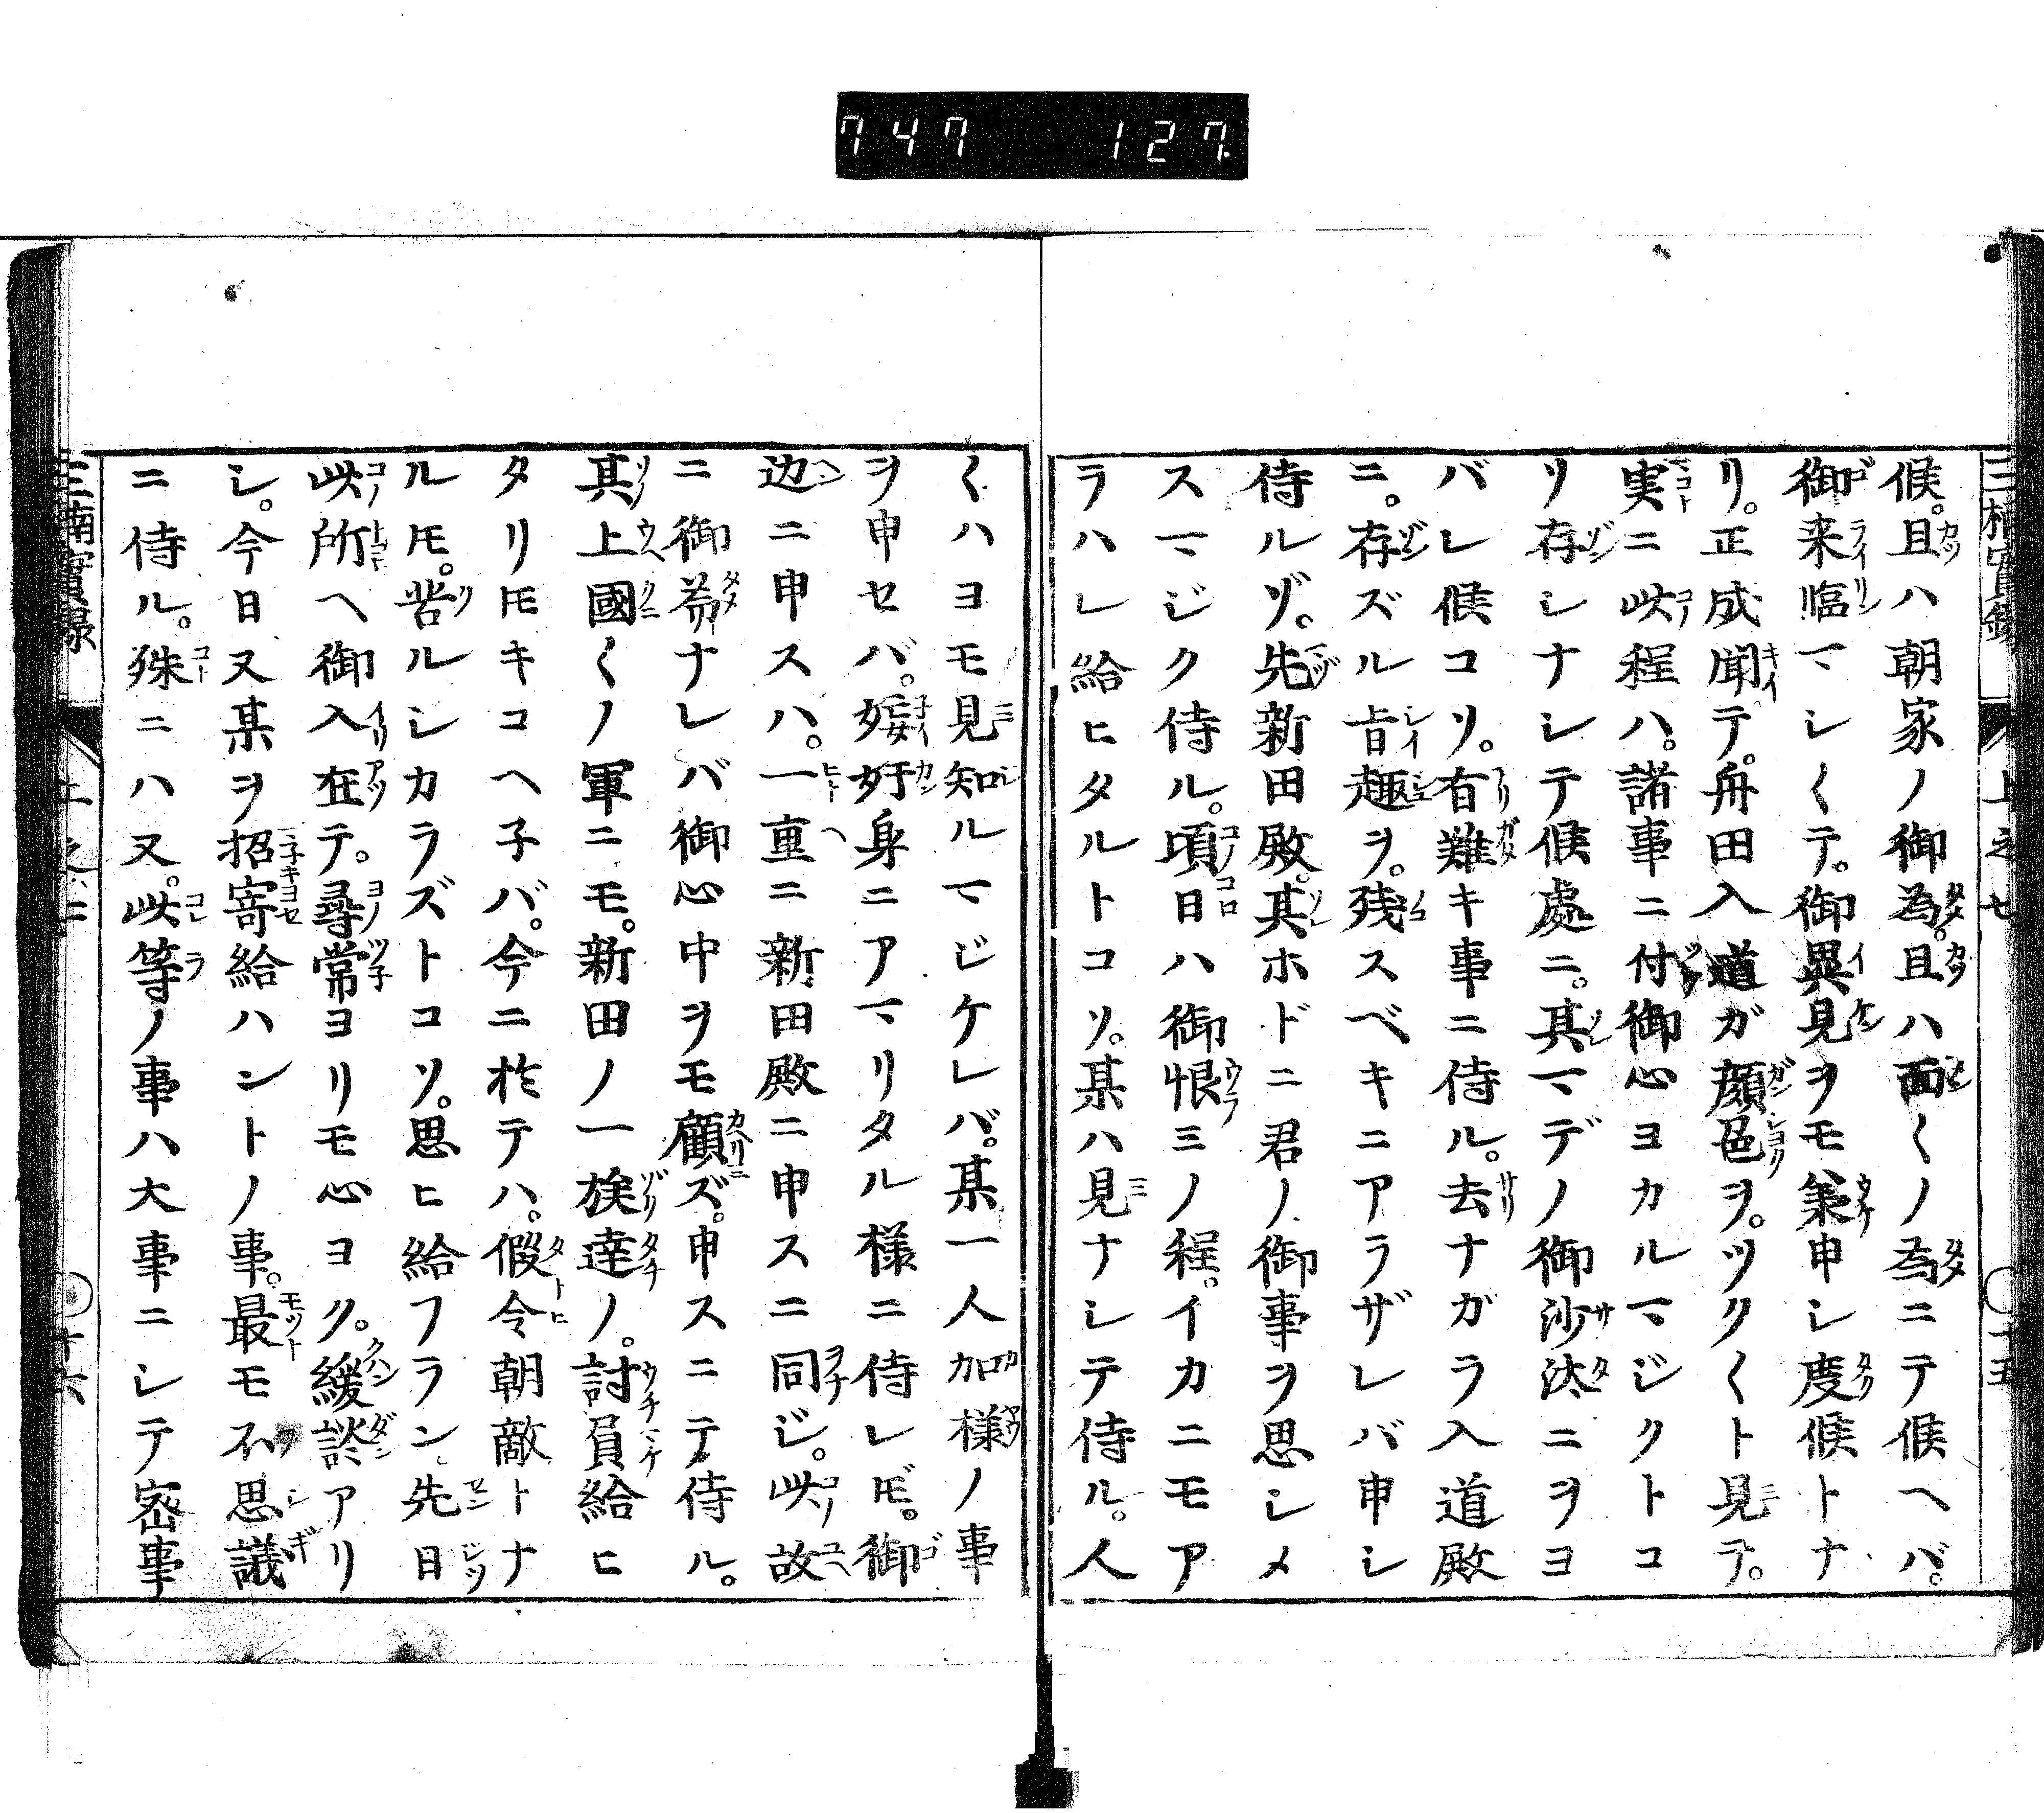 747 127
候。且ハ朝家ノ御為。且ハ面〱ノ為ニテ候ヘバ。
御来臨マシ〱テ。御異見ヲモ承申シ度候トナ
リ。正成聞テ。舟田入道ガ顔色ヲ。ツク〱ト見テ。
実ニ此程ハ。諸事ニ付御心ヨカルマジクトコ
ソ存シナシテ候處ニ。其マデノ御沙汰ニヲヨ
バレ候コソ。有難キ事ニ侍ル。去ナガラ入道殿
ニ。存ズル旨趣ヲ。残スベキニアラザレバ申シ
侍ルゾ。先新田殿。其ホドニ君ノ御事ヲ思シメ
スマジク侍ル。頃日ハ御恨ミノ程。イカニモア
ラハレ給ヒタルトコソ。某ハ見ナシテ侍ル。人
〱ハヨモ見知ルマジケレバ。某一人加様ノ事
ヲ申セバ。嫉妬身ニアマリタル様ニ侍レ𪜈。御
辺ニ申スハ。一重ニ新田殿ニ申スニ同ジ。此故
ニ御為ナレバ御心中ヲモ顧ズ。申スニテ侍ル。
其上國〱ノ軍ニモ。新田ノ一族達ノ。討負給ヒ
タリ𪜈キコヘ子バ。今ニ於テハ。假令朝敵トナ
ル𪜈。苦ルシカラズトコソ。思ヒ給フラン。先日
此所ヘ御入在テ。尋常ヨリモ心ヨク。緩談アリ
シ。今日又某ヲ招寄給ハントノ事。最モ不思議
ニ侍ル。殊ニハ又。此等ノ事ハ大事ニシテ密事